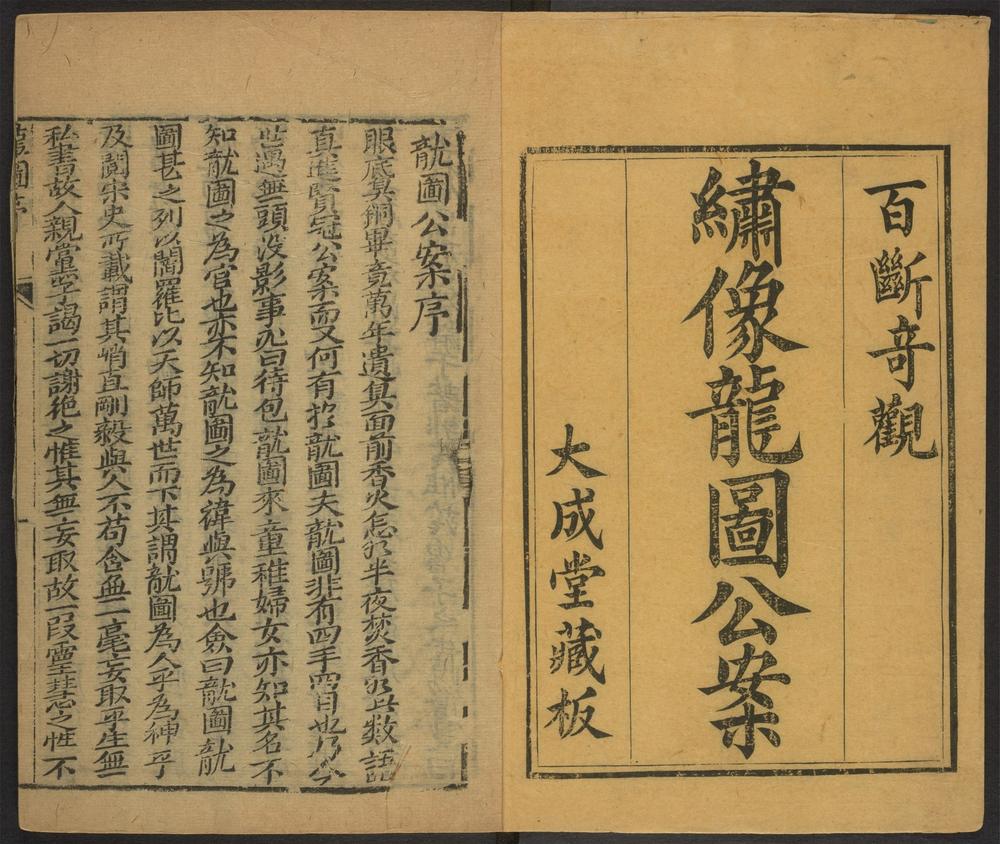 百斷奇觀
繡像龍圖公案
大成堂藏板
龍圖公案序
眼底莫銅畢竟萬年遺臭面前香火怎如半夜焚香只此數語
直進賢冠公案而又何有於龍圖夫龍圖非有四手四目也乃今
世遇無頭沒影事必曰待包龍圖來童稚婦女亦知其名不
知龍圖之為官也亦不知龍圖之為諱與號也僉曰龍圖龍
圖甚之列以閻羅比以天師萬世而下其謂龍圖為人乎為神乎
及閱宋史所載謂其峭直剛毅與人不苟合無一毫妄取平生無
私書故人親黨干謁一切謝絕之惟其無妄取故一段靈慧之性不
龍圖序